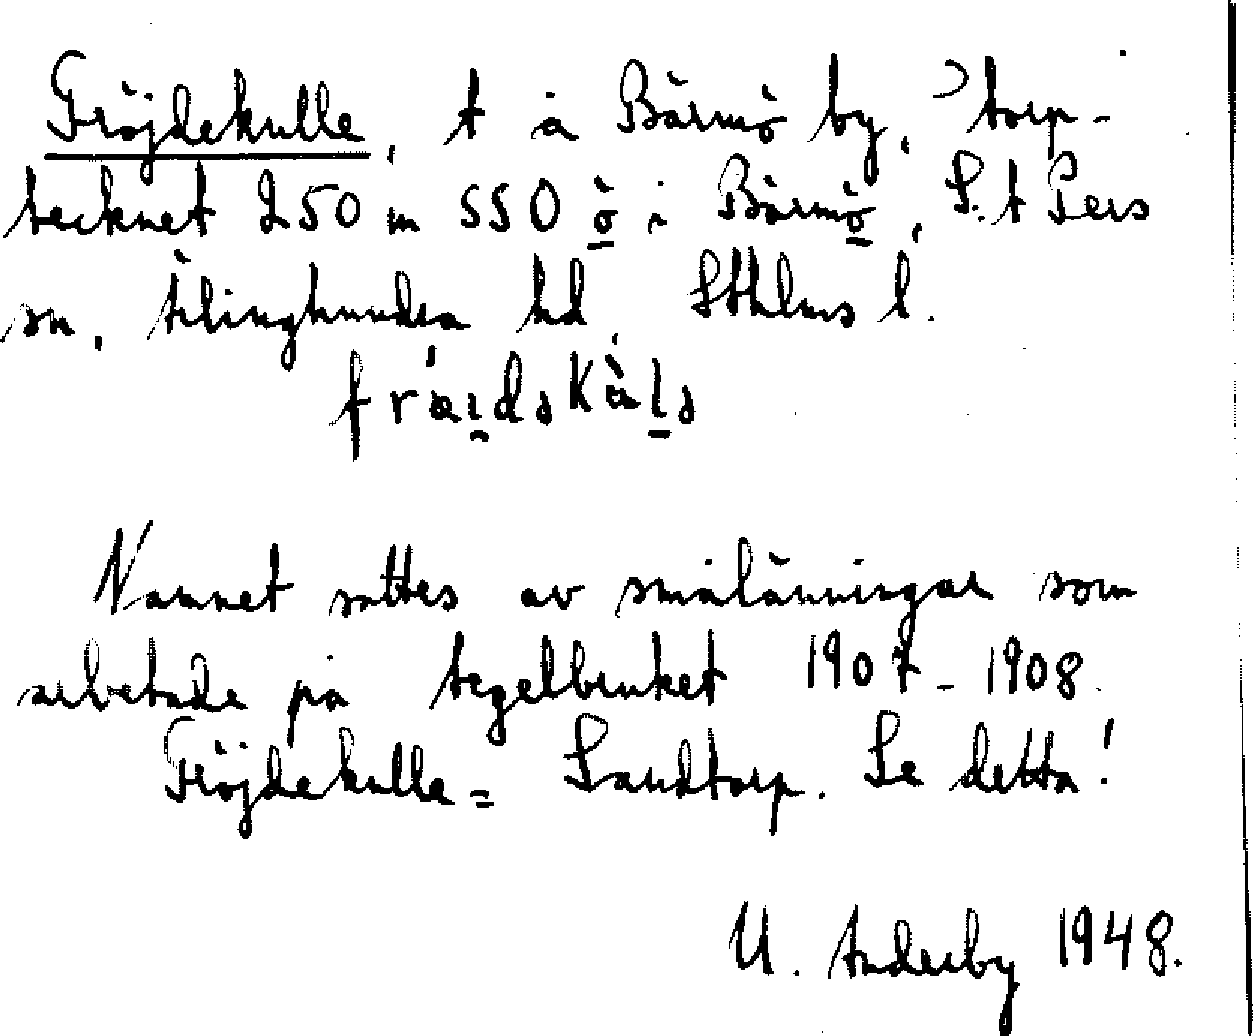 Fröjdekulle, t å Bärmö by, torp-
tecknet 250 m SSO ö i Bärmö, S:t Pers
sn, Ärlinghundra hd, Sthlms l.
Namnet sattes av smålänningar som
arbetade på tegelbruket 1907-1908.
Fröjdekulle = Sandtorp. Se detta!
U. Anderby 1948.